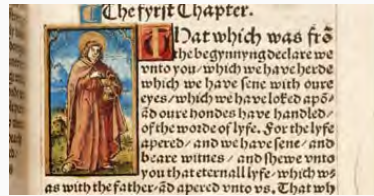 The fyrst Chapter.
That which was frõ
the begynnyng declare we
vnto you/which we have herde
which we have sene with oure
eyes/which we have loked apõ/
ãd oure hondes have handled/
of the worde of lyfe. For the lyfe
apered/and we have sene/and
beare witnes/and shewe vnto
you that eternall lyfe/which w⸗
as with the father/ãd apered vnto vs. That wh